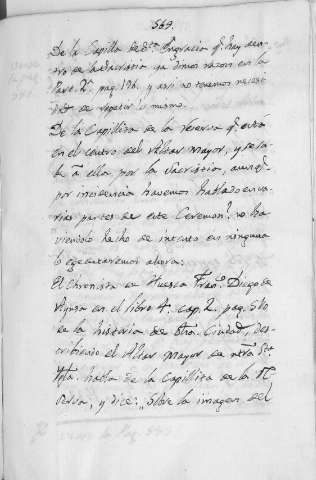 569.
De la Capilla de Sta. Engracia q.e hay den-
tro de la Sacristia ya dimos razon en la
Parte 2.a pag. 176. y asi no tenemos necesi-
dad de repetir lo mismo.
De la Capillita de la reserva q.e está
en el centro del Altar mayor, y se sa-
le á ella por la Sacristia, aunq.e
por incidencia havemos hablado en va-
rias partes de este Ceremon.l no ha-
viendolo hecho de intento en ninguna
lo egecutaremos ahora.
El Chronista de Huesca Fran.co Diego de
Aynsa en el libro 4.o cap. 2. pag. 510
de la historia de dha. Ciudad, des-
cribiendo el Altar mayor de ntra. Sta.
Igla. habla de la Capillita de la re
serva, y dice: Sobre la imagen del